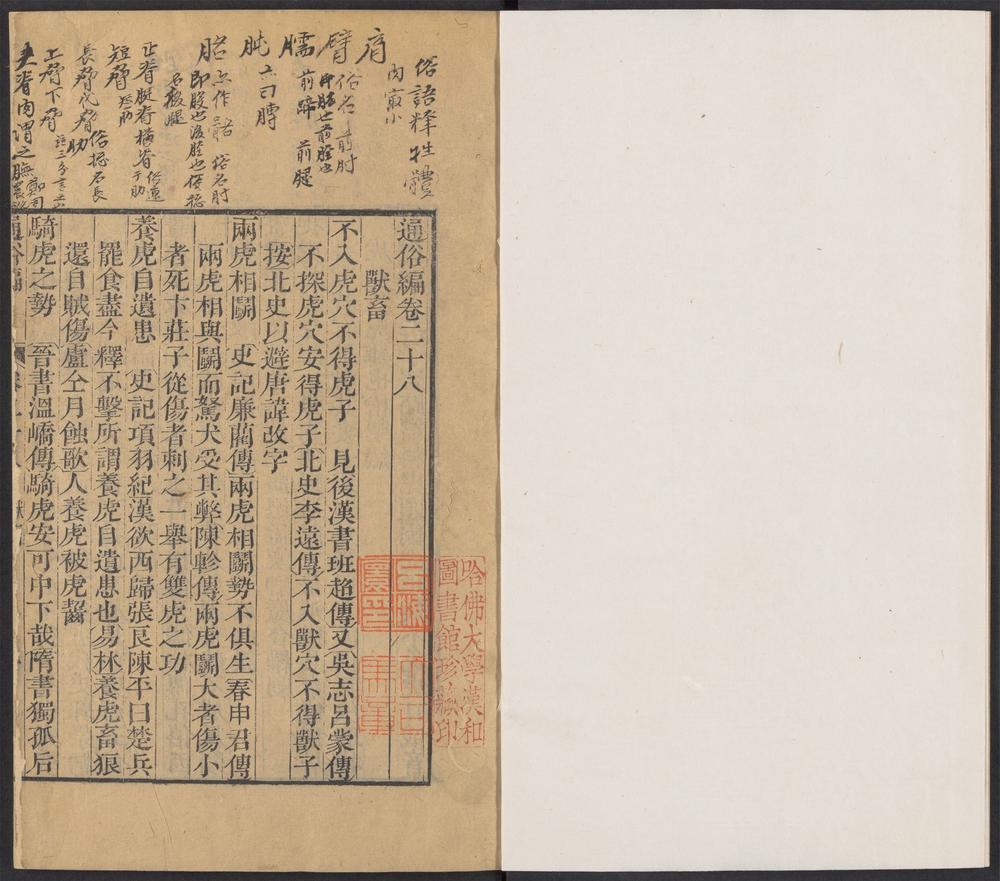 俗語釋牲體
肩
肉最小
臂
俗名前肘
臑
前蹄 前腿
肫
亦曰膞
胳
亦作骼 俗名肘
即股也後脛也俗總
名後腿
正脊脡脊橫脊
短脅
長脅代脅
俗總名長
肋
上脅下脅
夾脊肉謂之膴
通俗編卷二十八
獸畜
不入虎穴不得虎子 見後漢書班超傳又吳志呂蒙傳
不探虎穴安得虎子北史李遠傳不入獸穴不得獸子
按北史以避唐諱改字
兩虎相鬭 史記廉藺傳兩虎相鬭勢不俱生春申君傳
兩虎相與鬭而駑犬受其弊陳軫傳兩虎鬭大者傷小
者死卞莊子從傷者刺之一舉有雙虎之功
養虎自遺患 史記項羽紀漢欲西歸張良陳平曰楚兵
罷食盡今釋不擊所謂養虎自遺患也易林養虎畜狼
還自賊傷盧仝月蝕歌人養虎被虎齧
騎虎之勢 晉書溫嶠傳騎虎安可中下哉隋書獨孤后
通俗編
哈佛大學漢和
圖書館珍藏印